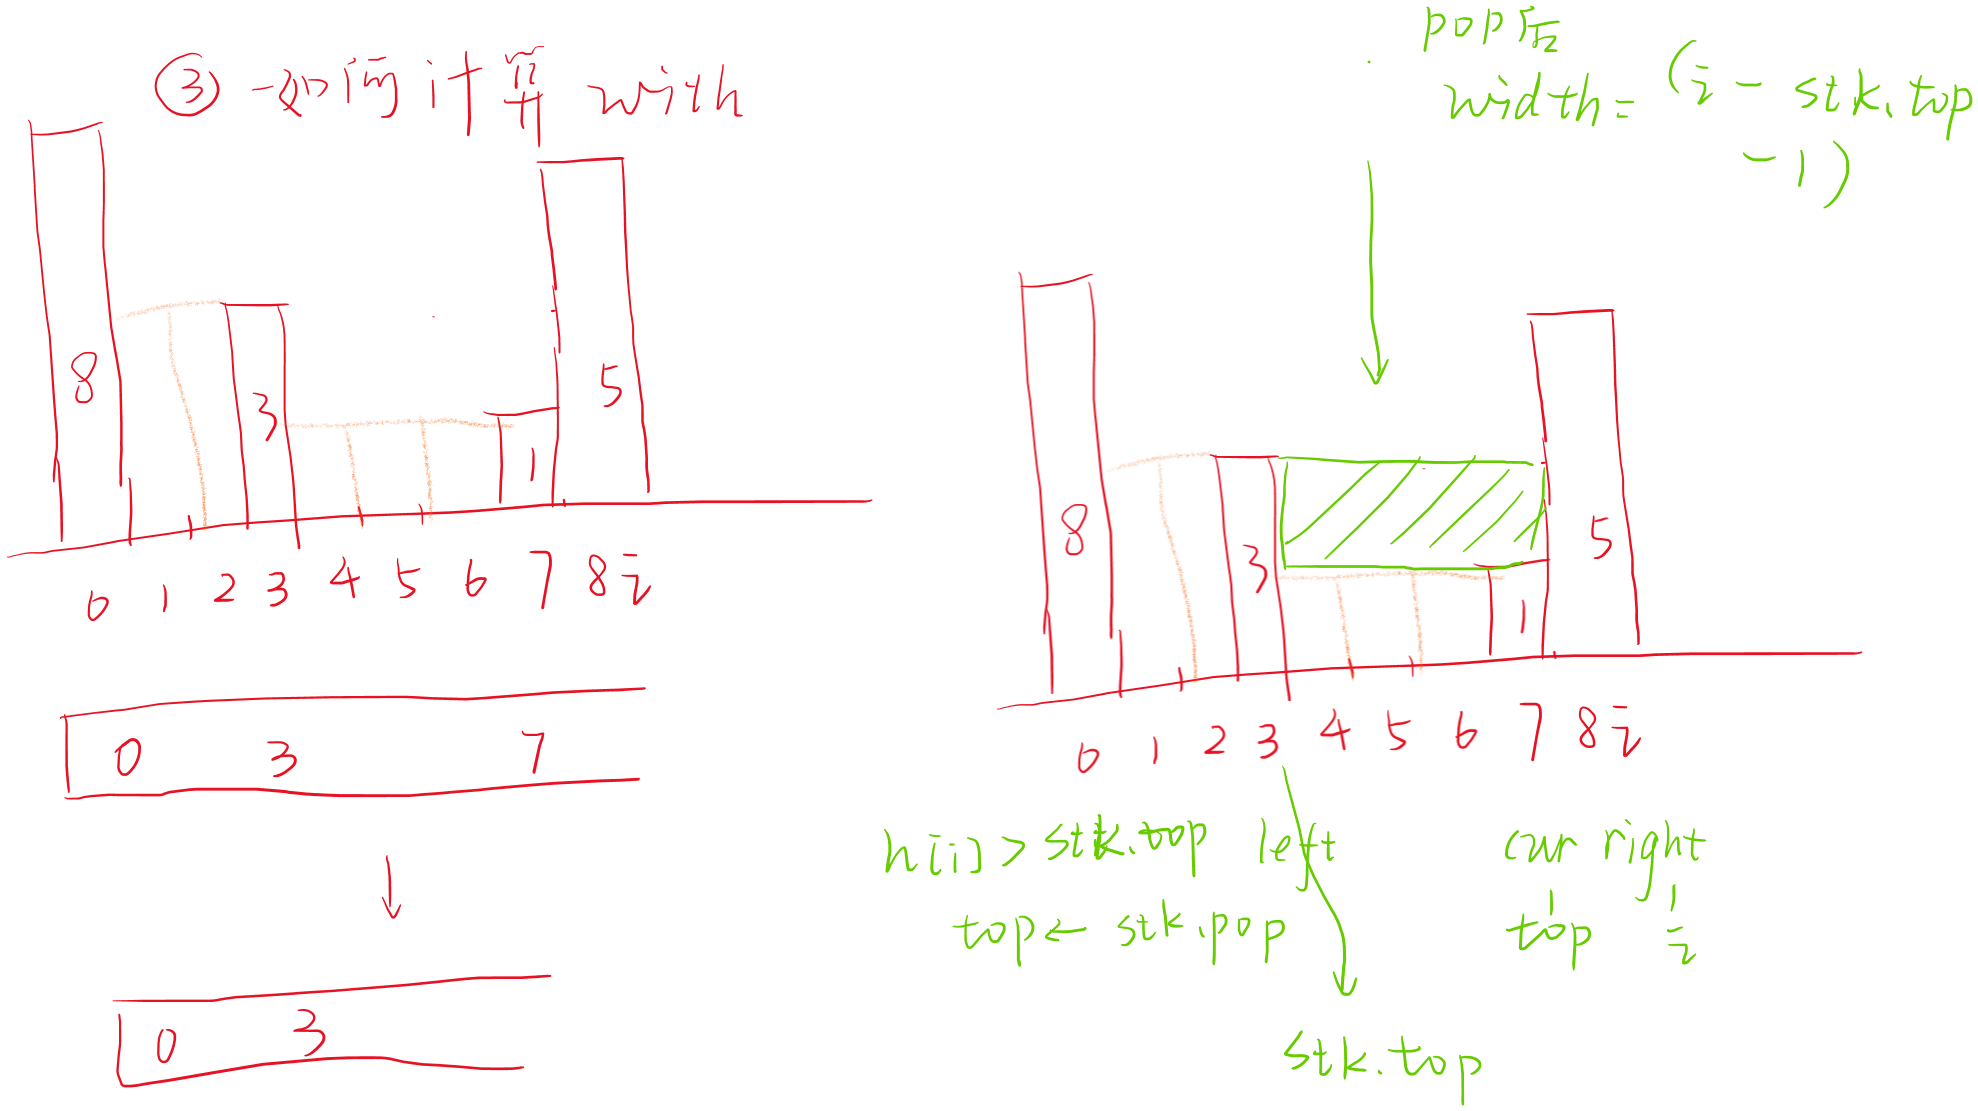 ③ 如何计算 with
8 3 1 5
0 1 2 3 4 5 6 7 8 i
0 3 7
0 3
pop后
width = (i - stk.top
-1)
8 3 1 5
0 1 2 3 4 5 6 7 8 i
h[i] > stk.top left cur right
top ← stk.pop top i
stk.top